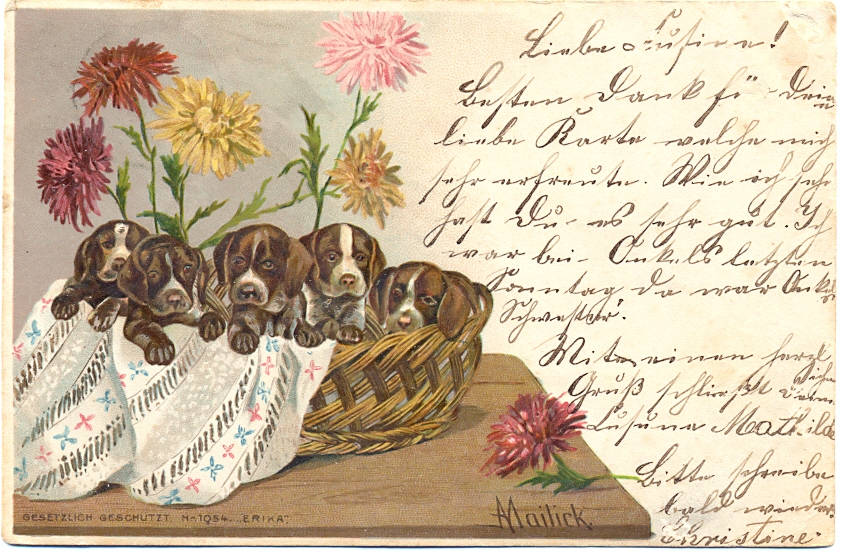 Liebe Cusine!
Besten Dank für Deine
liebe Karte welche mich
sehr erfreute. Wie ich seh
hast Du es sehr gut. Ich
war bei Onkels letzten
Sonntag da war Onkels
Schwester.
Mit einen herzl
ichen
Gruß schließt Deine
Cusine Mathilde
Bitte schreibe
bald wieder.
Christine
Mailick
GESETZLICH GESCHÜTZT. No 1054. "ERIKA"